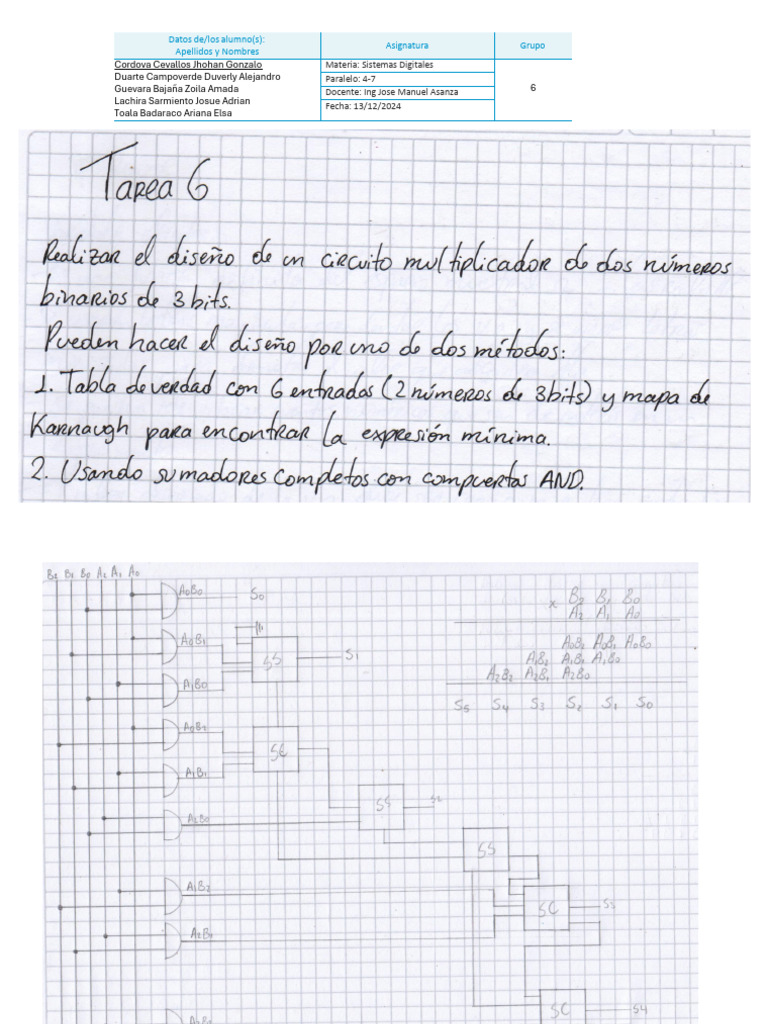 Datos de/los alumno(s):
Apellidos y Nombres
Asignatura
Grupo
Cordova Cevallos Jhohan Gonzalo
Duarte Campoverde Duverly Alejandro
Guevara Bajaña Zoila Amada
Lachira Sarmiento Josue Adrian
Toala Badaraco Ariana Elsa
Materia: Sistemas Digitales
Paralelo: 4-7
Docente: Ing Jose Manuel Asanza
Fecha: 13/12/2024
6
Tarea 6
Realizar el diseño de un circuito multiplicador de dos números
binarios de 3 bits.
Pueden hacer el diseño por uno de dos métodos:
1. Tabla de verdad con 6 entradas (2 números de 3 bits) y mapa de
Karnaugh para encontrar la expresión mínima.
2. Usando sumadores completos con compuertas AND.
B2 B1 B0 A2 A1 A0
A0B0 S0
x B2 B1 B0
A2 A1 A0
A0B2 A0B1 A0B0
A1B2 A1B1 A1B0
A2B2 A2B1 A2B0
S5 S4 S3 S2 S1 S0
A0B1
SS S1
A1B0
SC
A1B1
SS S2
A2B0
SS
A1B2
SC S3
SC S4